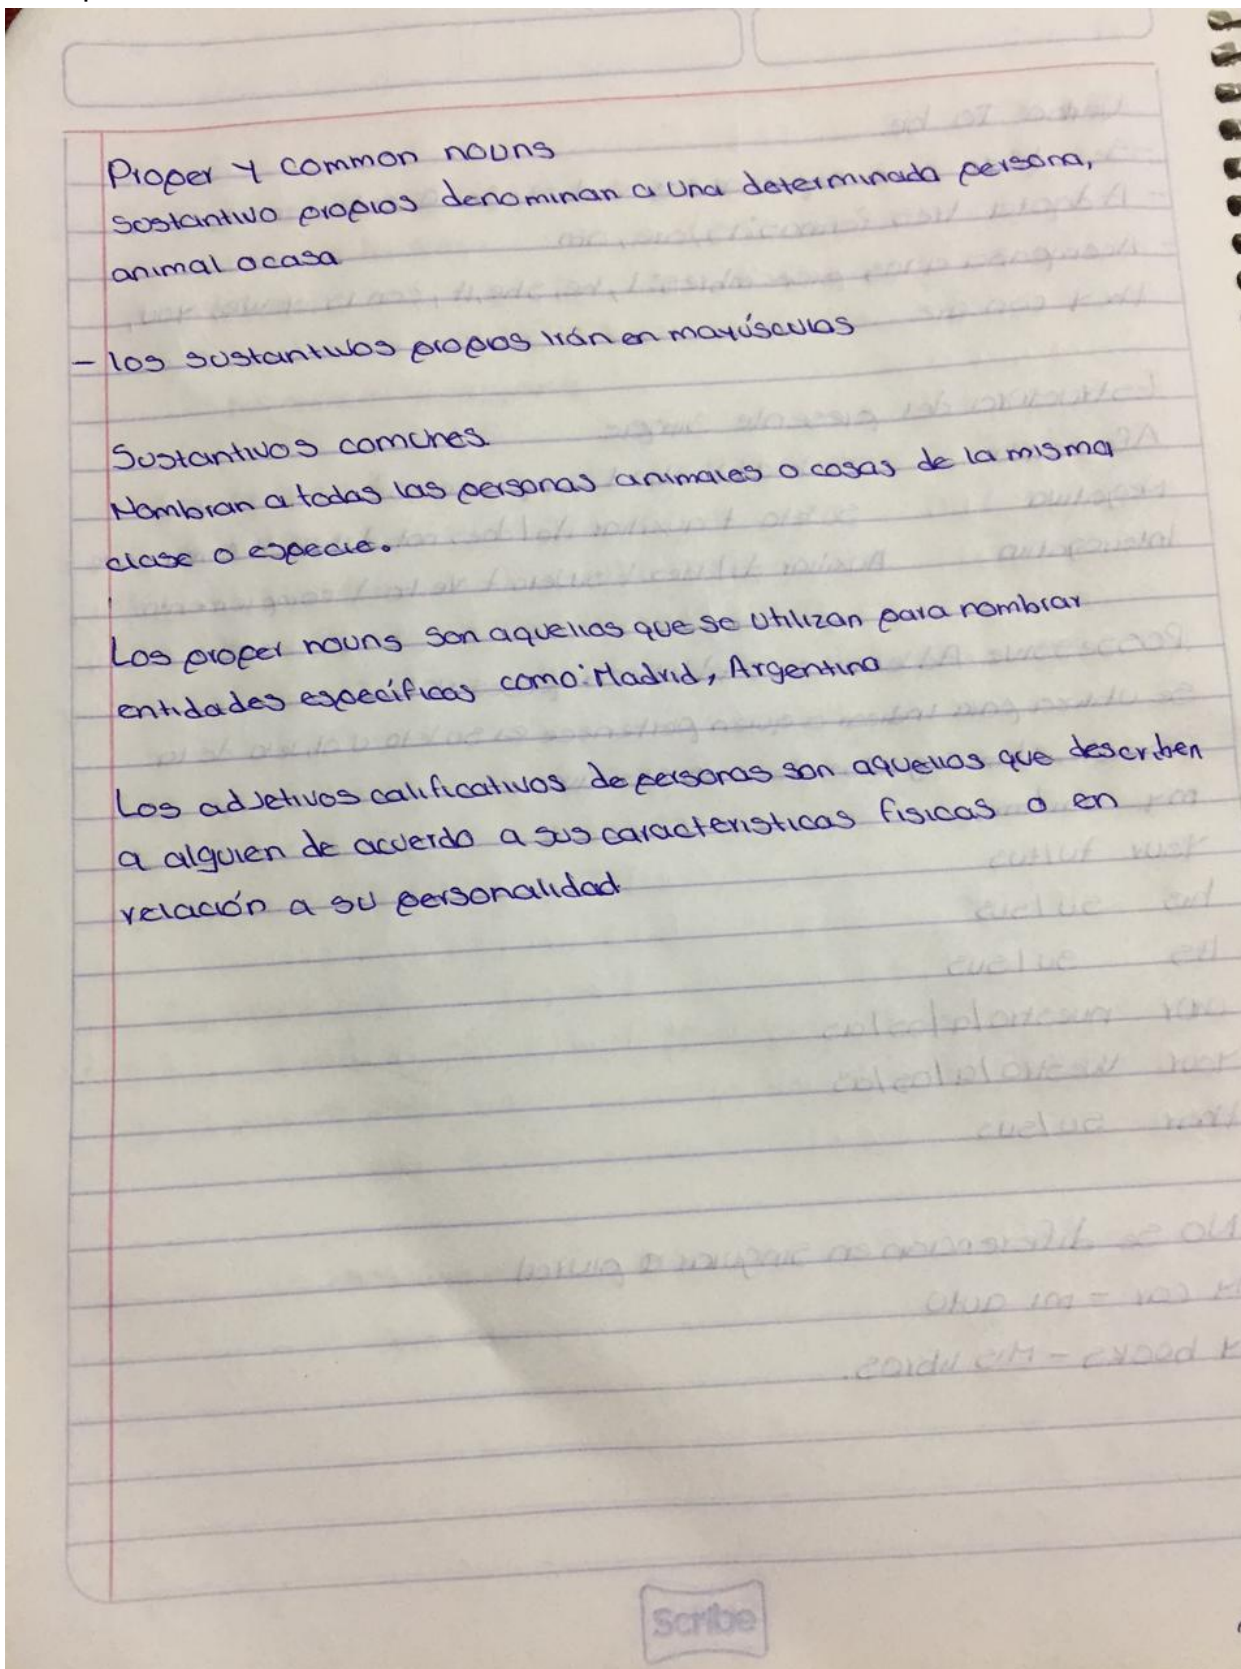 Proper y common nouns
Sostantivo propios denominan a una determinada persona,
animal o casa
- los sustantivos propios irán en mayúsculas
Sustantivos comunes.
Nombran a todas las personas animales o cosas de la misma
clase o especie.
Los proper nouns son aquellos que se utilizan para nombrar
entidades específicas como: Madrid, Argentina
Los adjetivos calificativos de personas son aquellos que describen
a alguien de acuerdo a sus caracteristicas fisicas o en
relación a su personalidad
Scribe